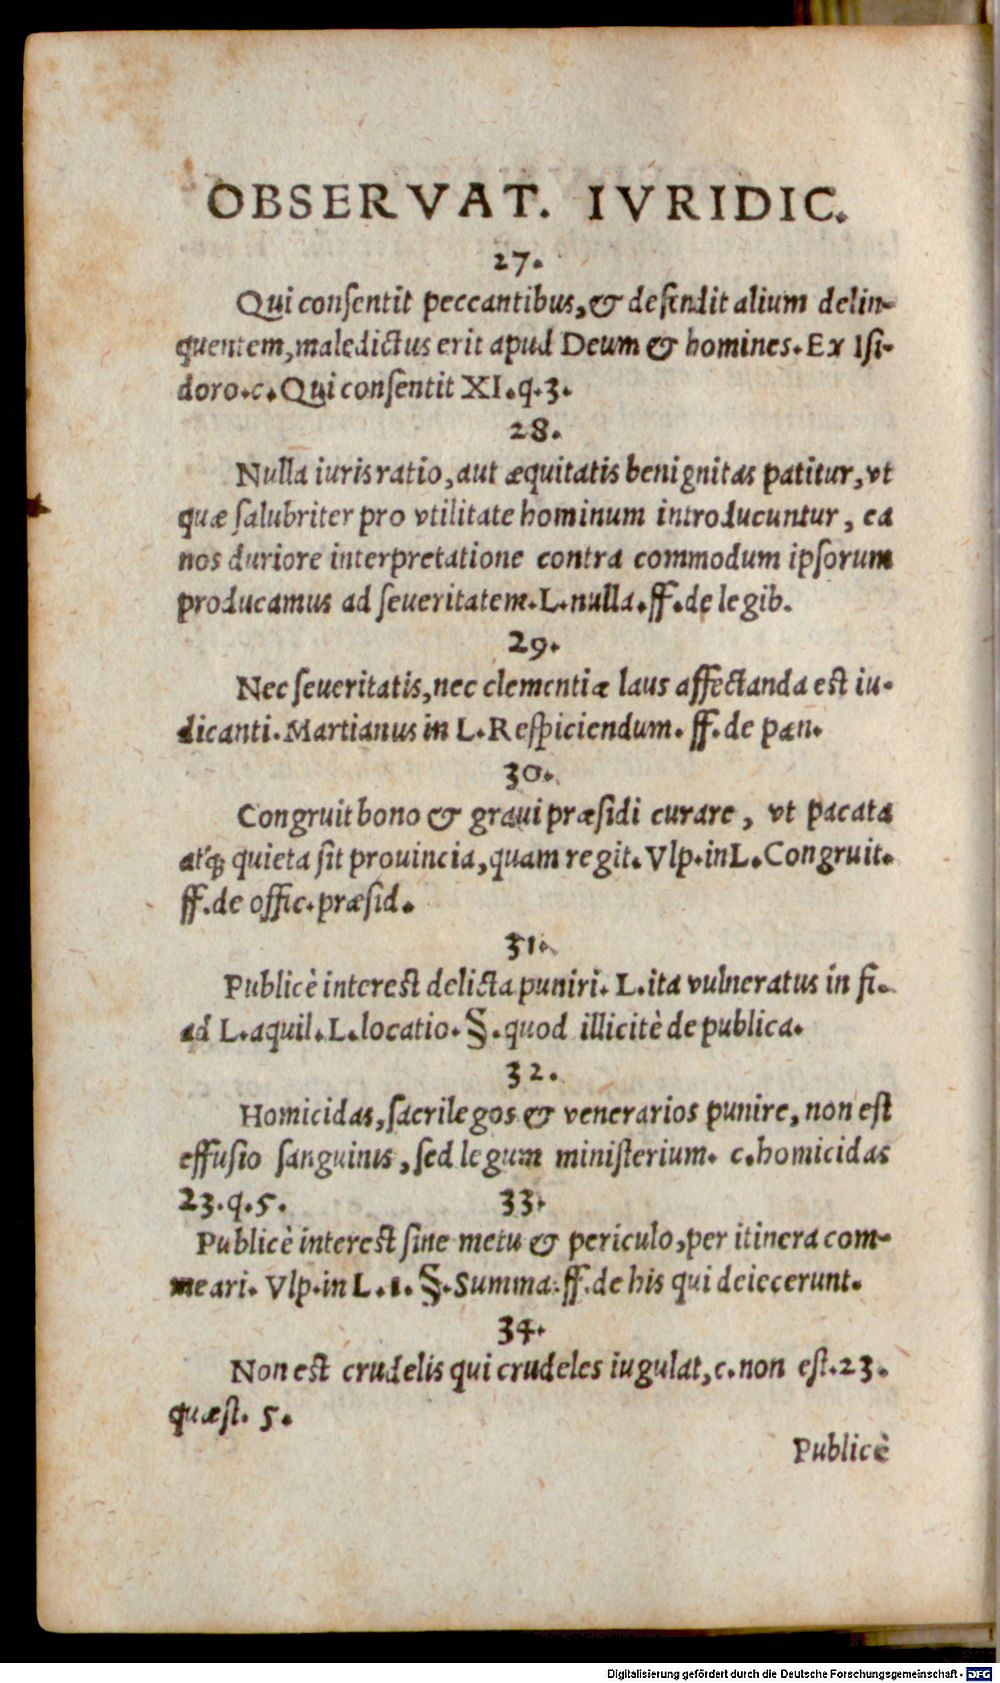 OBSERVAT. IVRIDIC.
27.
Qui conſentit peccantibus, & defendit alium delin-
quentem, maledictus erit apud Deum & homines. Ex Iſi-
doro. c. Qui conſentit XI. q. 3.
28.
Nulla iuris ratio, aut æquitatis benignitas patitur, vt
quæ ſalubriter pro vtilitate hominum introducuntur, ea
nos duriore interpretatione contra commodum ipſorum
producamus ad ſeueritatem. L. nulla. ff. de legib.
29.
Nec ſeueritatis, nec clementiæ laus affectanda est iu-
dicanti. Martianus in L. Reſpiciendum. ff. de pæn.
30.
Congruit bono & graui præſidi curare, vt pacata
atq́; quieta ſit prouincia, quam regit. Vlp. in L. Congruit.
ff. de offic. præſid.
31.
Publicè interest delicta puniri. L. ita vulneratus in fi.
ad L. aquil. L. locatio. §. quod illicitè de publica.
32.
Homicidas, ſacrilegos & venerarios punire, non eſt
effuſio ſanguinis, ſed legum miniſterium. c. homicidas
23. q. 5.
33.
Publicè interest ſine metu & periculo, per itinera com-
meari. Vlp. in L. 1. §. Summa. ff. de his qui deiecerunt.
34.
Non est crudelis qui crudeles iugulat, c. non eſt. 23.
quæſt. 5.
Publicè
Digitalisierung gefördert durch die Deutsche Forschungsgemeinschaft - DFG